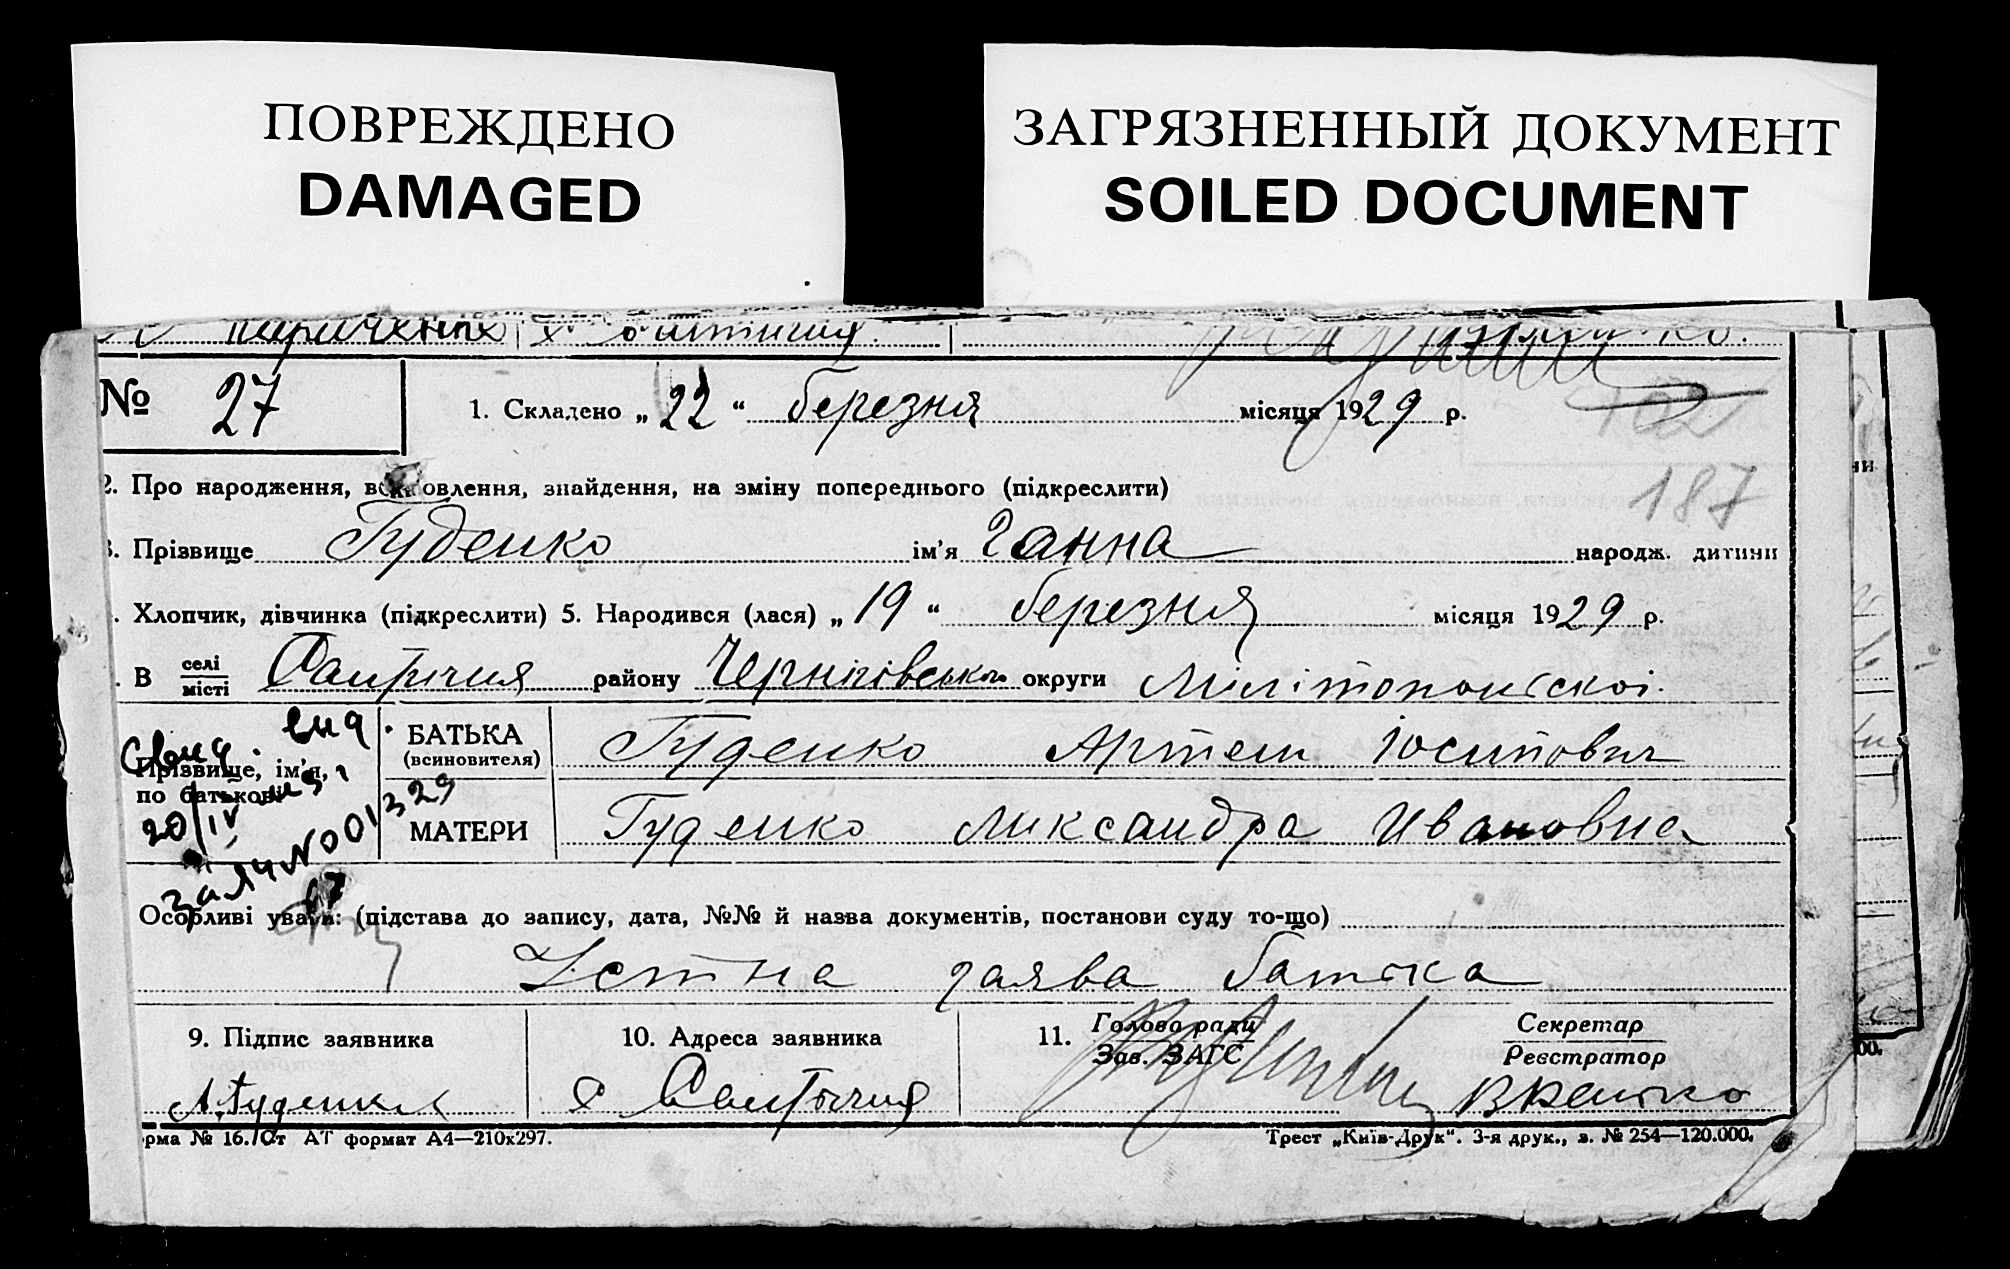 ПОВРЕЖДЕНО
DAMAGED
ЗАГРЯЗНЕННЫЙ ДОКУМЕНТ
SOILED DOCUMENT
№ 27
1. Складено „ 22 “ березня місяця 1929 р.
187
2. Про народження, всиновлення, знайдення, на зміну попереднього (підкреслити)
3. Прізвище Гуденко ім'я Ганна народж. дитини
Хлопчик, дівчинка (підкреслити) 5. Народився (лася) „ 19 “ березня місяця 1929 р.
В селі
місті
району Чернігівського округи
Прізвище, ім'я,
по батькові
БАТЬКА
(всиновителя)
Гуденко Артем Іосипович
МАТЕРИ
Гуденко Ликсандра Ивановна
20/IV
№ 001329
Особливі уваги: (підстава до запису, дата, №№ й назва документів, постанови суду то-що)
Устна заява батька
9. Підпис заявника
А. Гуденко
10. Адреса заявника
х
11. Голова ради
Зав. ЗАГС
Секретар
Реєстратор
орма № 16. Ст АТ формат А4—210х297.
Трест „Київ-Друк“. 3-я друк., з. № 254—120.000.